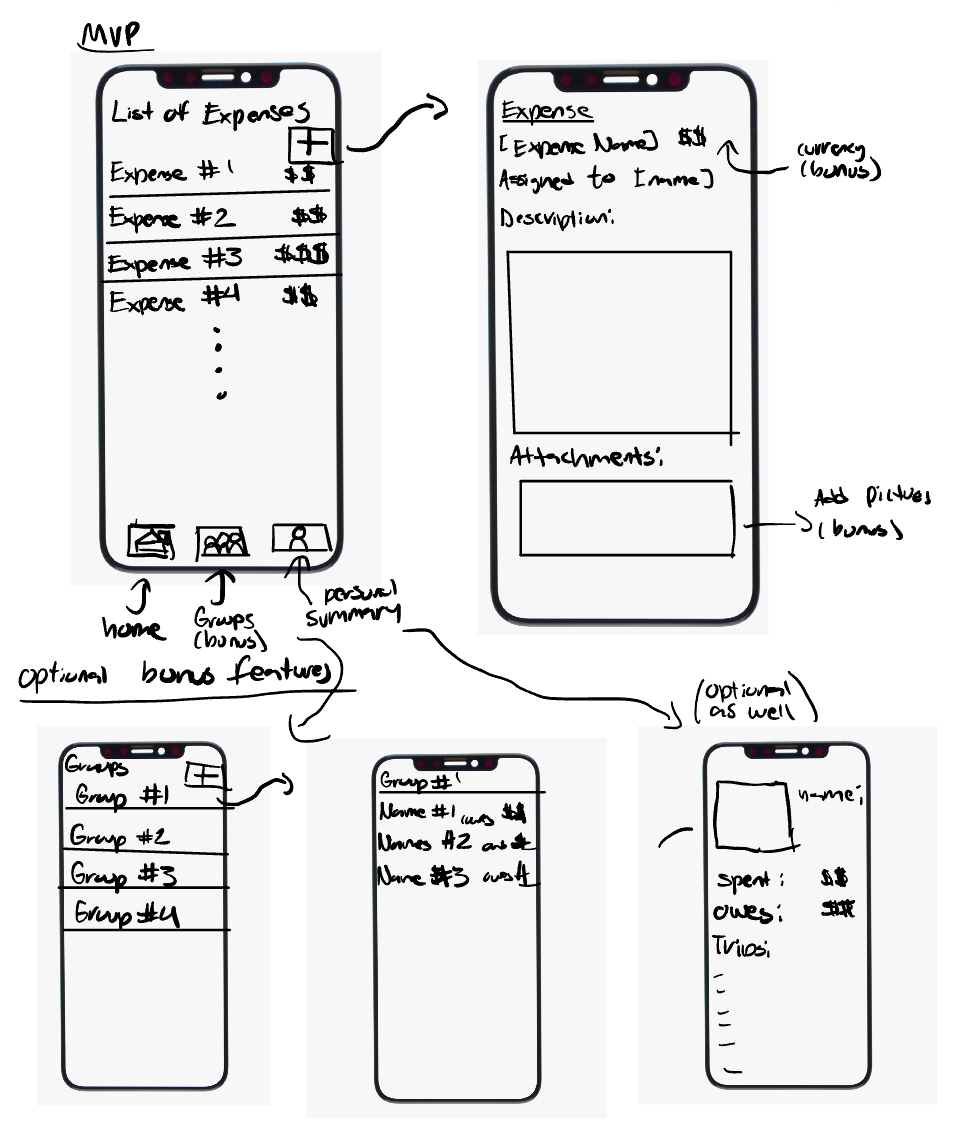 MVP
List of Expenses
Expense #1 $$
Expense #2 $$
Expense #3 $$$
Expense #4 $$
home
Groups
(bonus)
personal
summary
Expense
[Expense Name] $$
currency
(bonus)
Assigned to [name]
Description:
Attachments:
Add pictures
(bonus)
optional bonus features
Groups
Group #1
Group #2
Group #3
Group #4
Group #1
Name #1 owes $$
Names #2 owes $
Name #3 owes
(optional
as well)
name:
spent: $$
owes: $$
Trips: